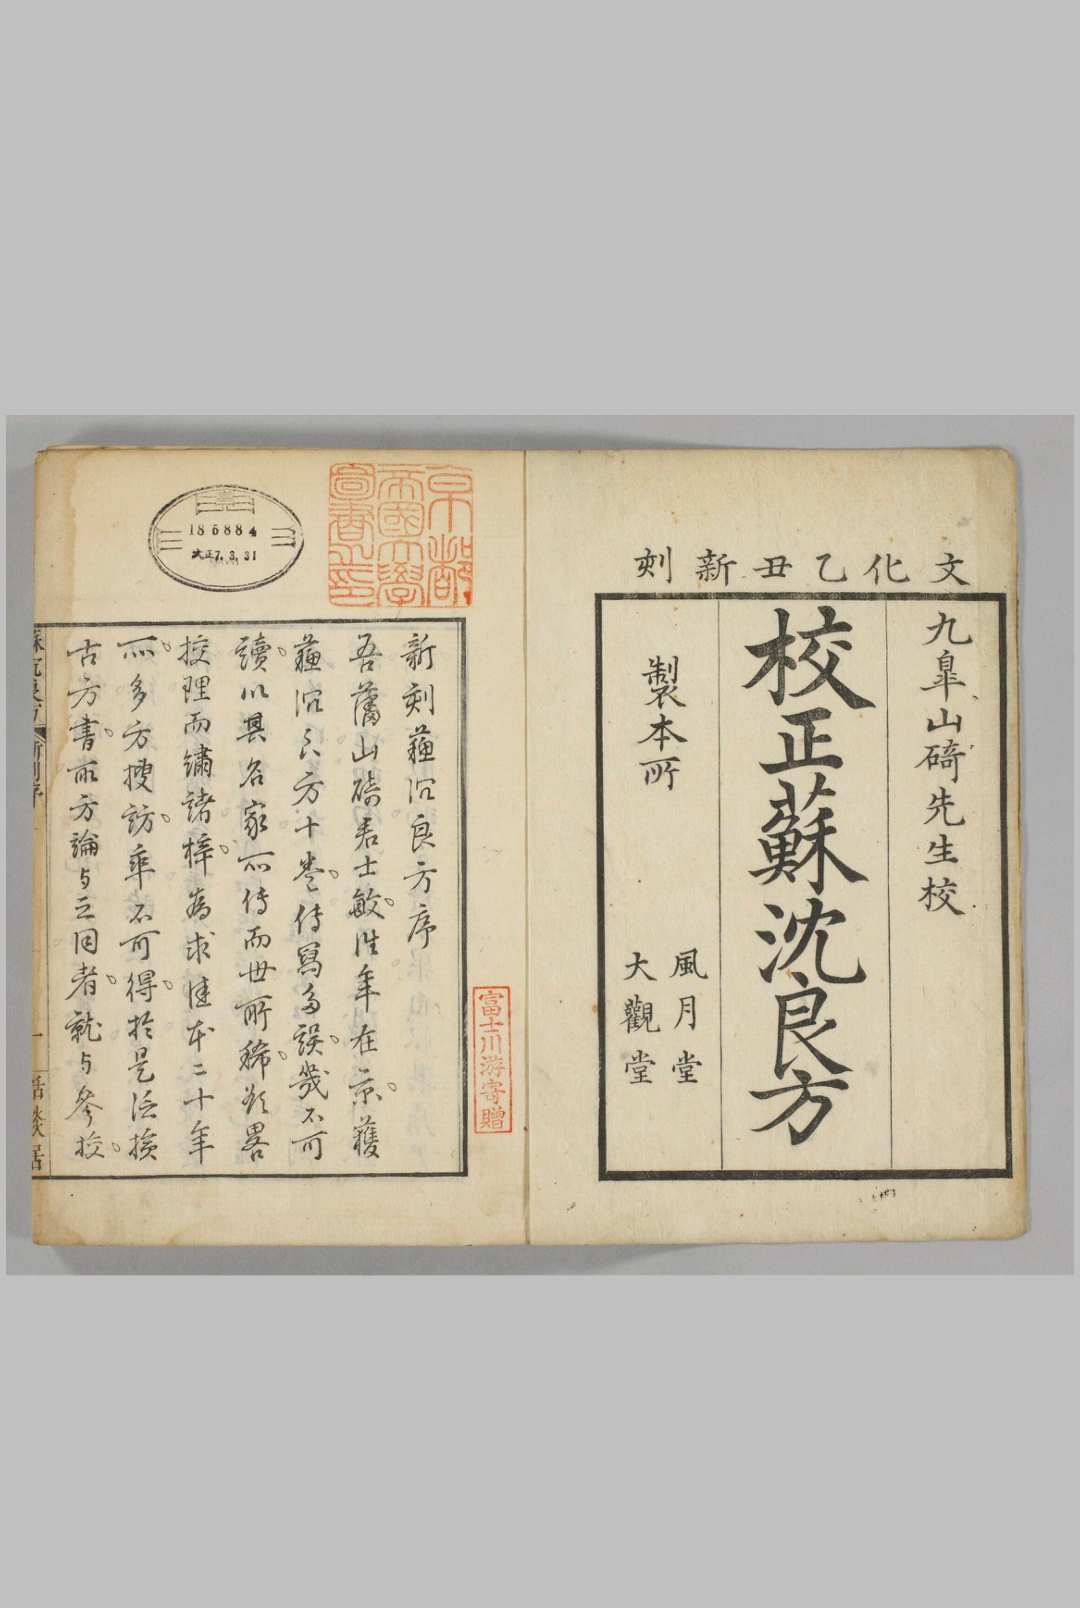 文化乙丑新刻
九皐山碕先生校
校正蘇沈良方
製本所
風月堂
大觀堂
富士川游寄贈
京都
帝國大學
圖書之印
185884
大正7.3.31
新刻蘓沉良方序
吾藩山碕君士敏往年在京獲
蘓沉良方十卷傳寫多誤幾不可
讀以其名家所傳而世所稀欲畧
挍理而繡諸梓為求佳本二十年
所多方搜訪卒不可得於是泛撿
古方書所方論与之同者就与參挍
蘇沉良方
新刻序
一